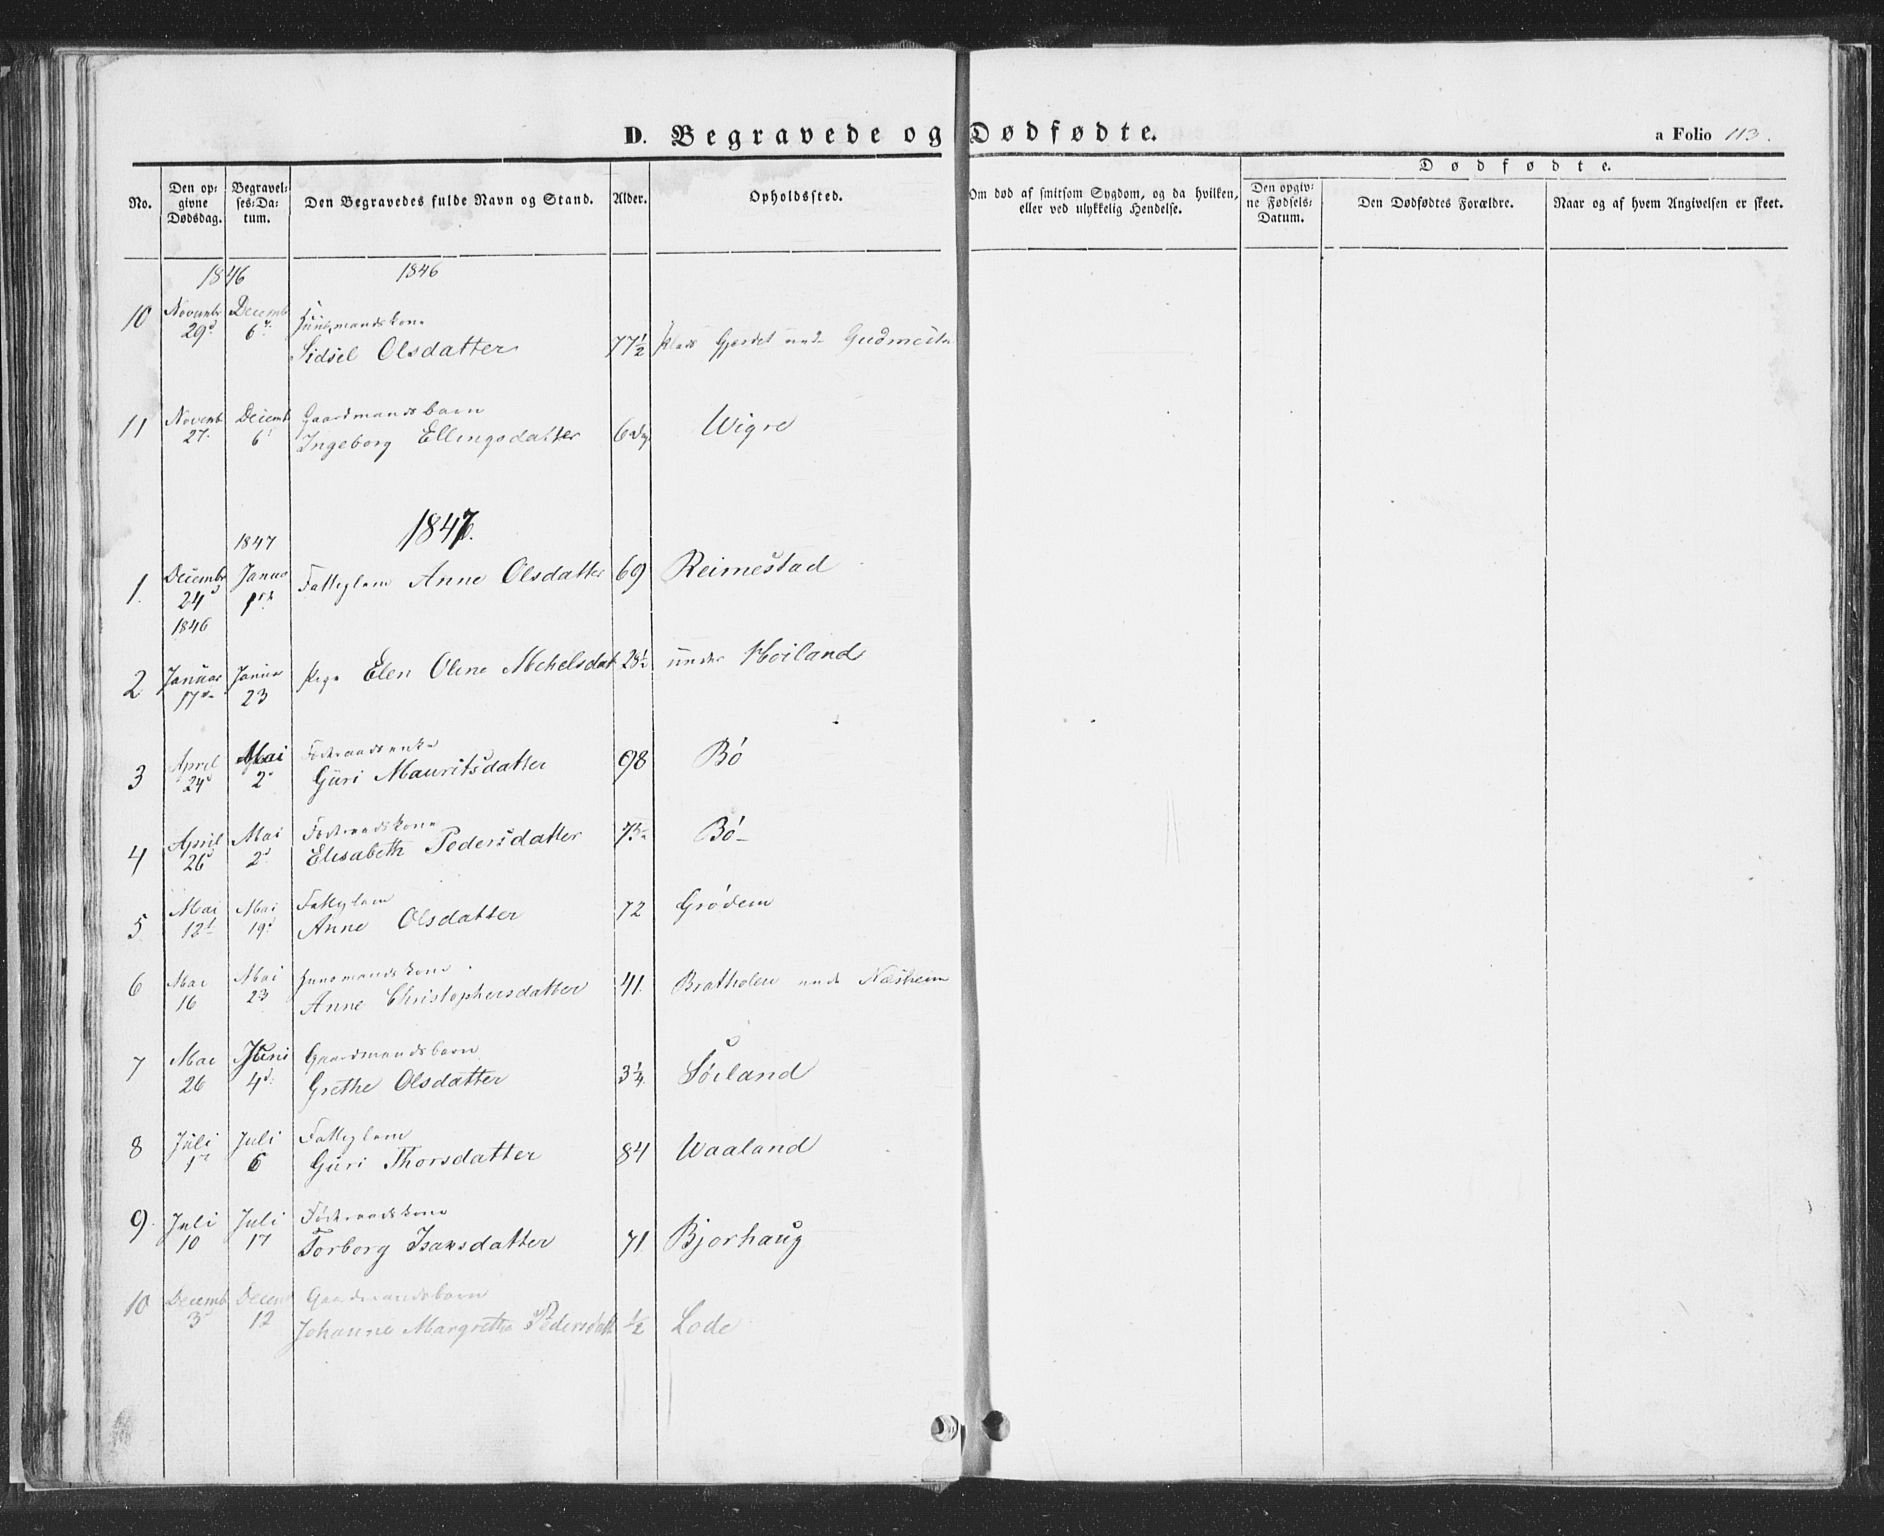 D. Begravede og Dødfødte.
a Folio 113.
No.
Den opgivne Dødsdag.
Begravelses-Datum.
Den Begravedes fulde Navn og Stand.
Alder.
Opholdssted.
Om død af smitsom Sygdom, og da hvilken, eller ved ulykkelig Hendelse.
Dødfødte.
Den opgivne Fødsels-Datum.
Den Dødfødtes Forældre.
Naar og af hvem Angivelsen er skeet.
1846 1846
10 Novembr 29d Decemb 6 Huusmandskone
Sidsel Olsdatter 77½ Plads Gjerdet und
11 Novemb 27 Decemb 6 Gaardmandsbarn
Ingeborg Ellingsdatter 6 Wigre
1847.
1847
1. Decembr 24d Janua 1 Fattiglem Anne Olsdatter 69 Reimestad
1846
2 Januar 17 Janua 23 Pige Elen Olene Michelsdat under Høiland
3 April 24d Mai 2 Føderaadsenke
Guri Mauritsdatter 98 Bö
4 April 26d Mai 2d Føderaadskone
Elisabeth Pedersdatter Bö
5 Mai 12 Mai 19 Fattiglem
Anne Olsdatter 72 Grödem
6 Mai 16 Mai 23 Huusmandskone
Anne Christophersdatter 41. Bratholen und Næsheim
7 Mai 26 Juni 4d Gaardmandsbarn
Grethe Olsdatter 3¼ Söiland
8 Juli 1 Juli 6 Fattiglem
Guri Thorsdatter 84 Waaland
9. Juli 10 Juli 17 Føderaadskone
Torborg Isaksdatter 71 Bjorhaug
10 Decemb 3 Decem 12 Gaardmandsbarn
Johanne Margrethe Pedersdatt ½ Lode